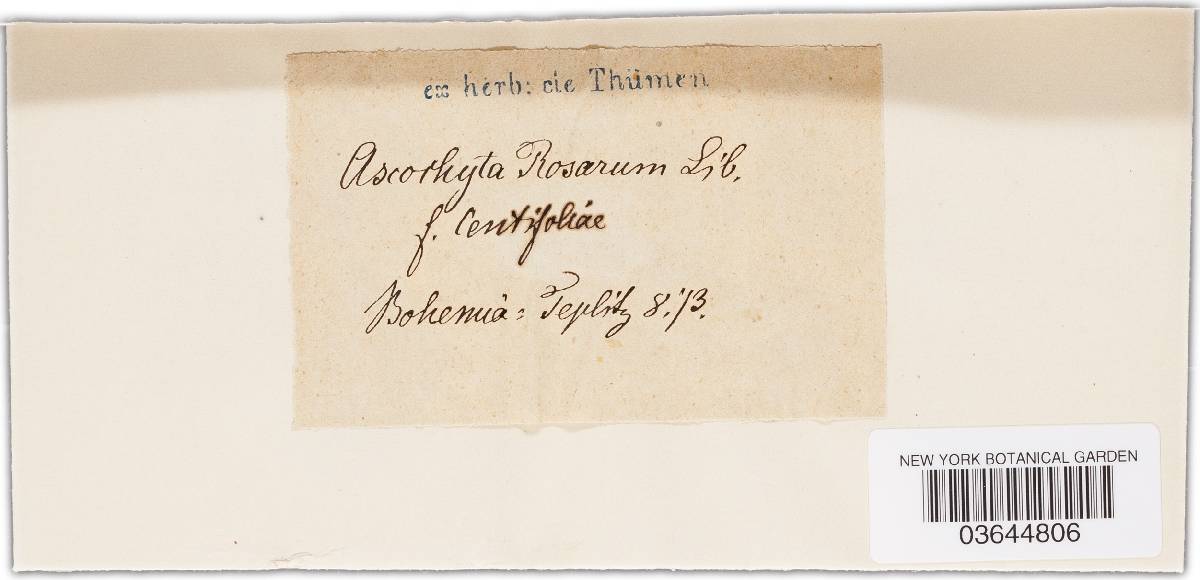 ex herb: de Thümen
Ascochyta Rosarum Lib.
f. Centifoliae
Bohemia: Teplitz 8.73.
NEW YORK BOTANICAL GARDEN
03644806